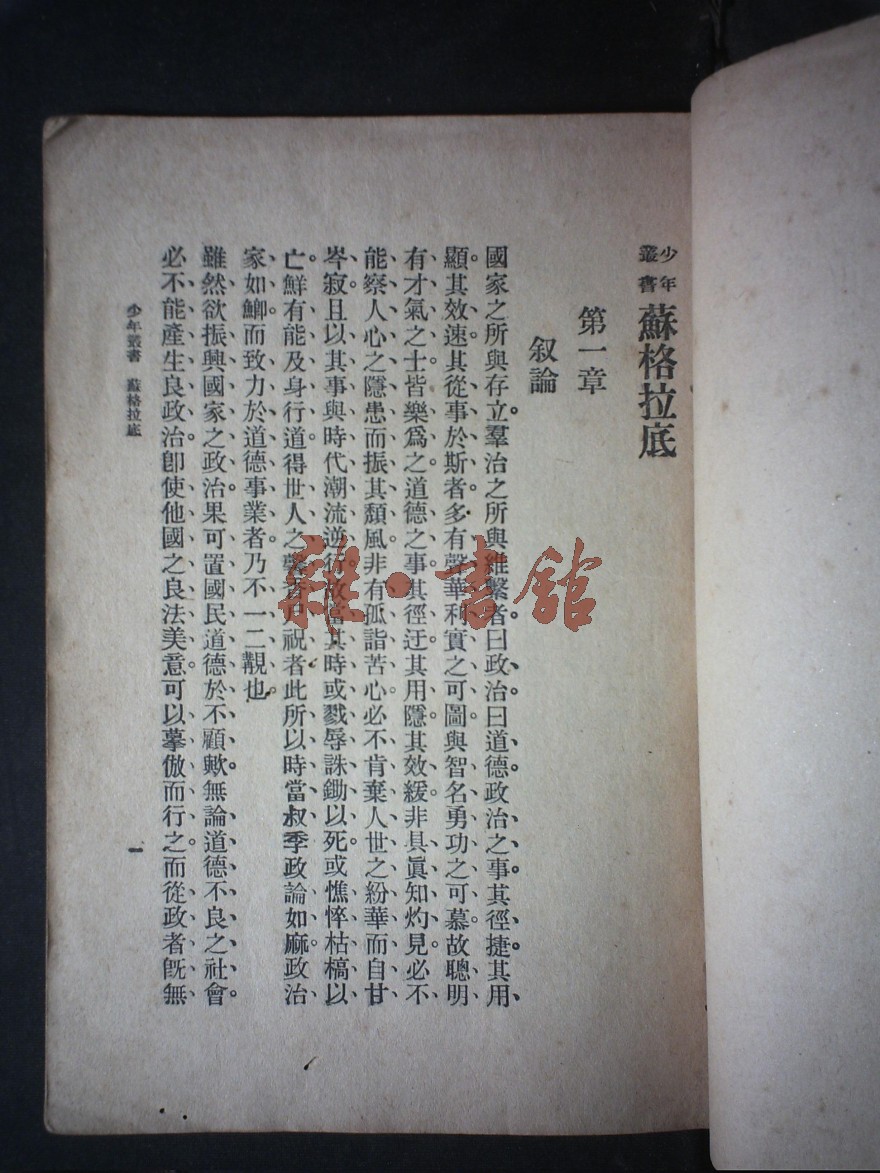 少年叢書 蘇格拉底
第一章
叙論
國家之所與存立。羣治之所與維繫者、曰政治、曰道德、政治之事。其徑捷、其用、
顯、其效速、其從事於斯者、多有聲華利實之可圖、與智名勇功之可慕、故聰明
有才氣之士、皆樂爲之、道德之事、其徑迂、其用隱、其效緩、非具眞知灼見、必不
能察人心之隱患、而振其頽風、非有孤詣苦心、必不肯棄人世之紛華、而自甘
岑寂、且以其事與時代潮流逆行、故當其時、或戮辱誅鋤以死、或憔悴枯槁以
亡。鮮有能及身行道、得世人之馨香尸祝者、此所以時當叔季、政論如麻、政治
家如鯽、而致力於道德事業者、乃不一二覯也。
雖然、欲振興國家之政治、果可置國民道德於不顧歟、無論道德不良之社會。
必不能產生良政治。卽使他國之良法美意、可以摹倣而行之、而從政者旣無
少年叢書 蘇格拉底
一
雜·書館